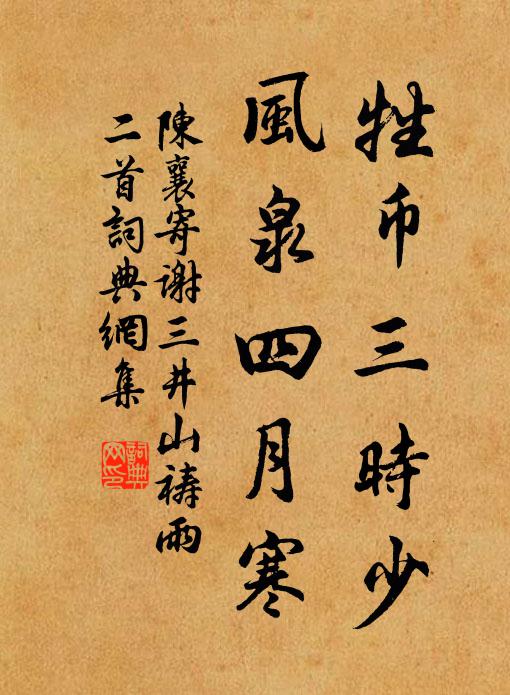 牲币三時少
風泉四月寒
陳襄寄谢三井山禱雨
二首詞典網集
詞典网印